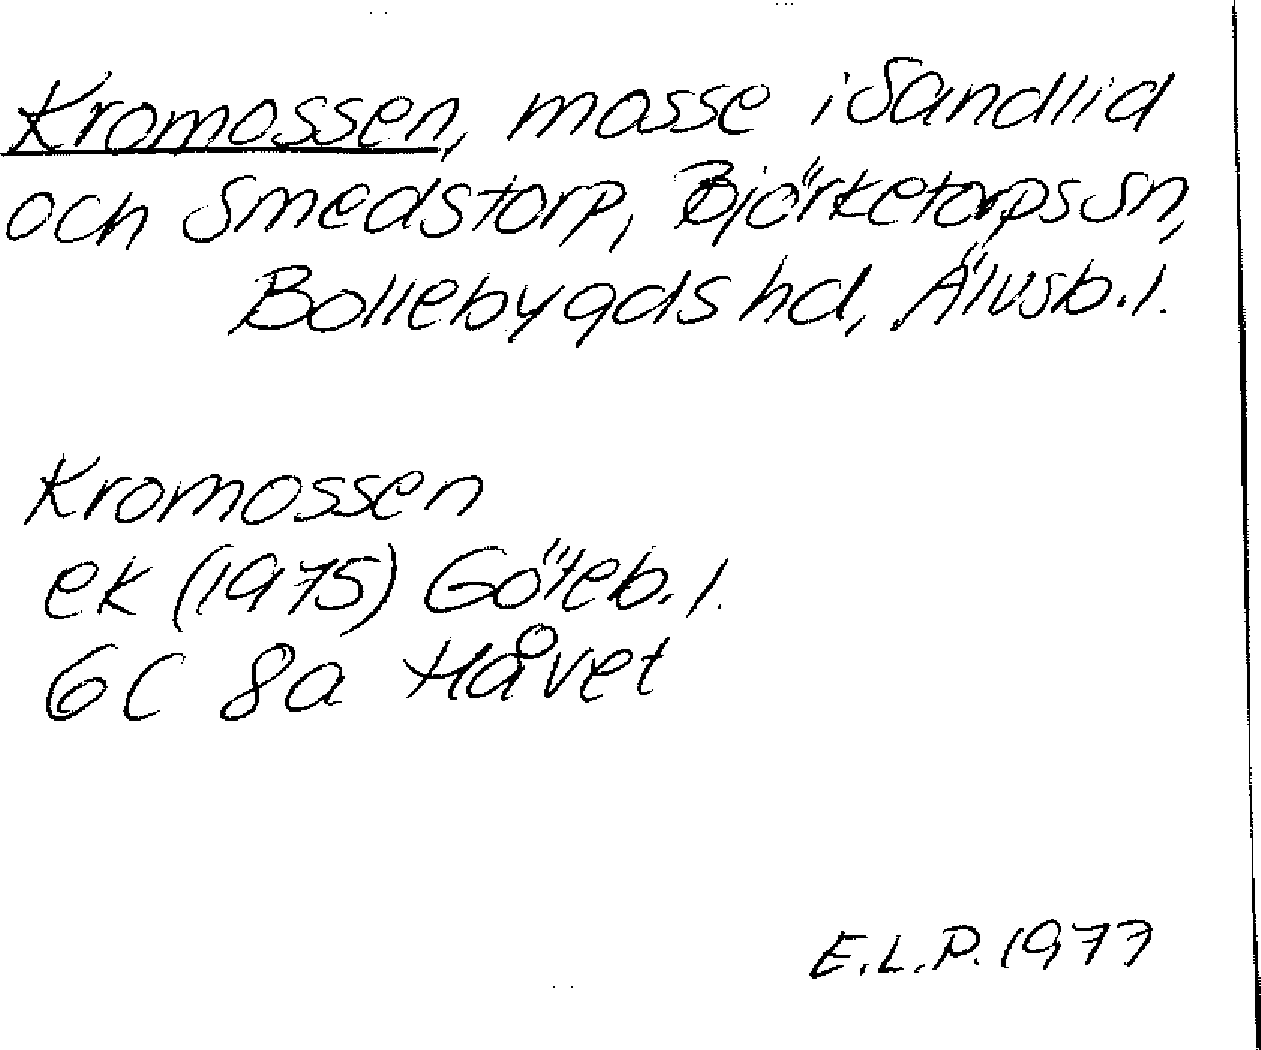 Kromossen, mosse i Sandlid
och Smedstorp, Björketorps sn,
Bollebygds hd, Älvsb. l.
Kromossen
ek (1975) Göteb. l.
6C 8a Håvet
E.L.P. 1977